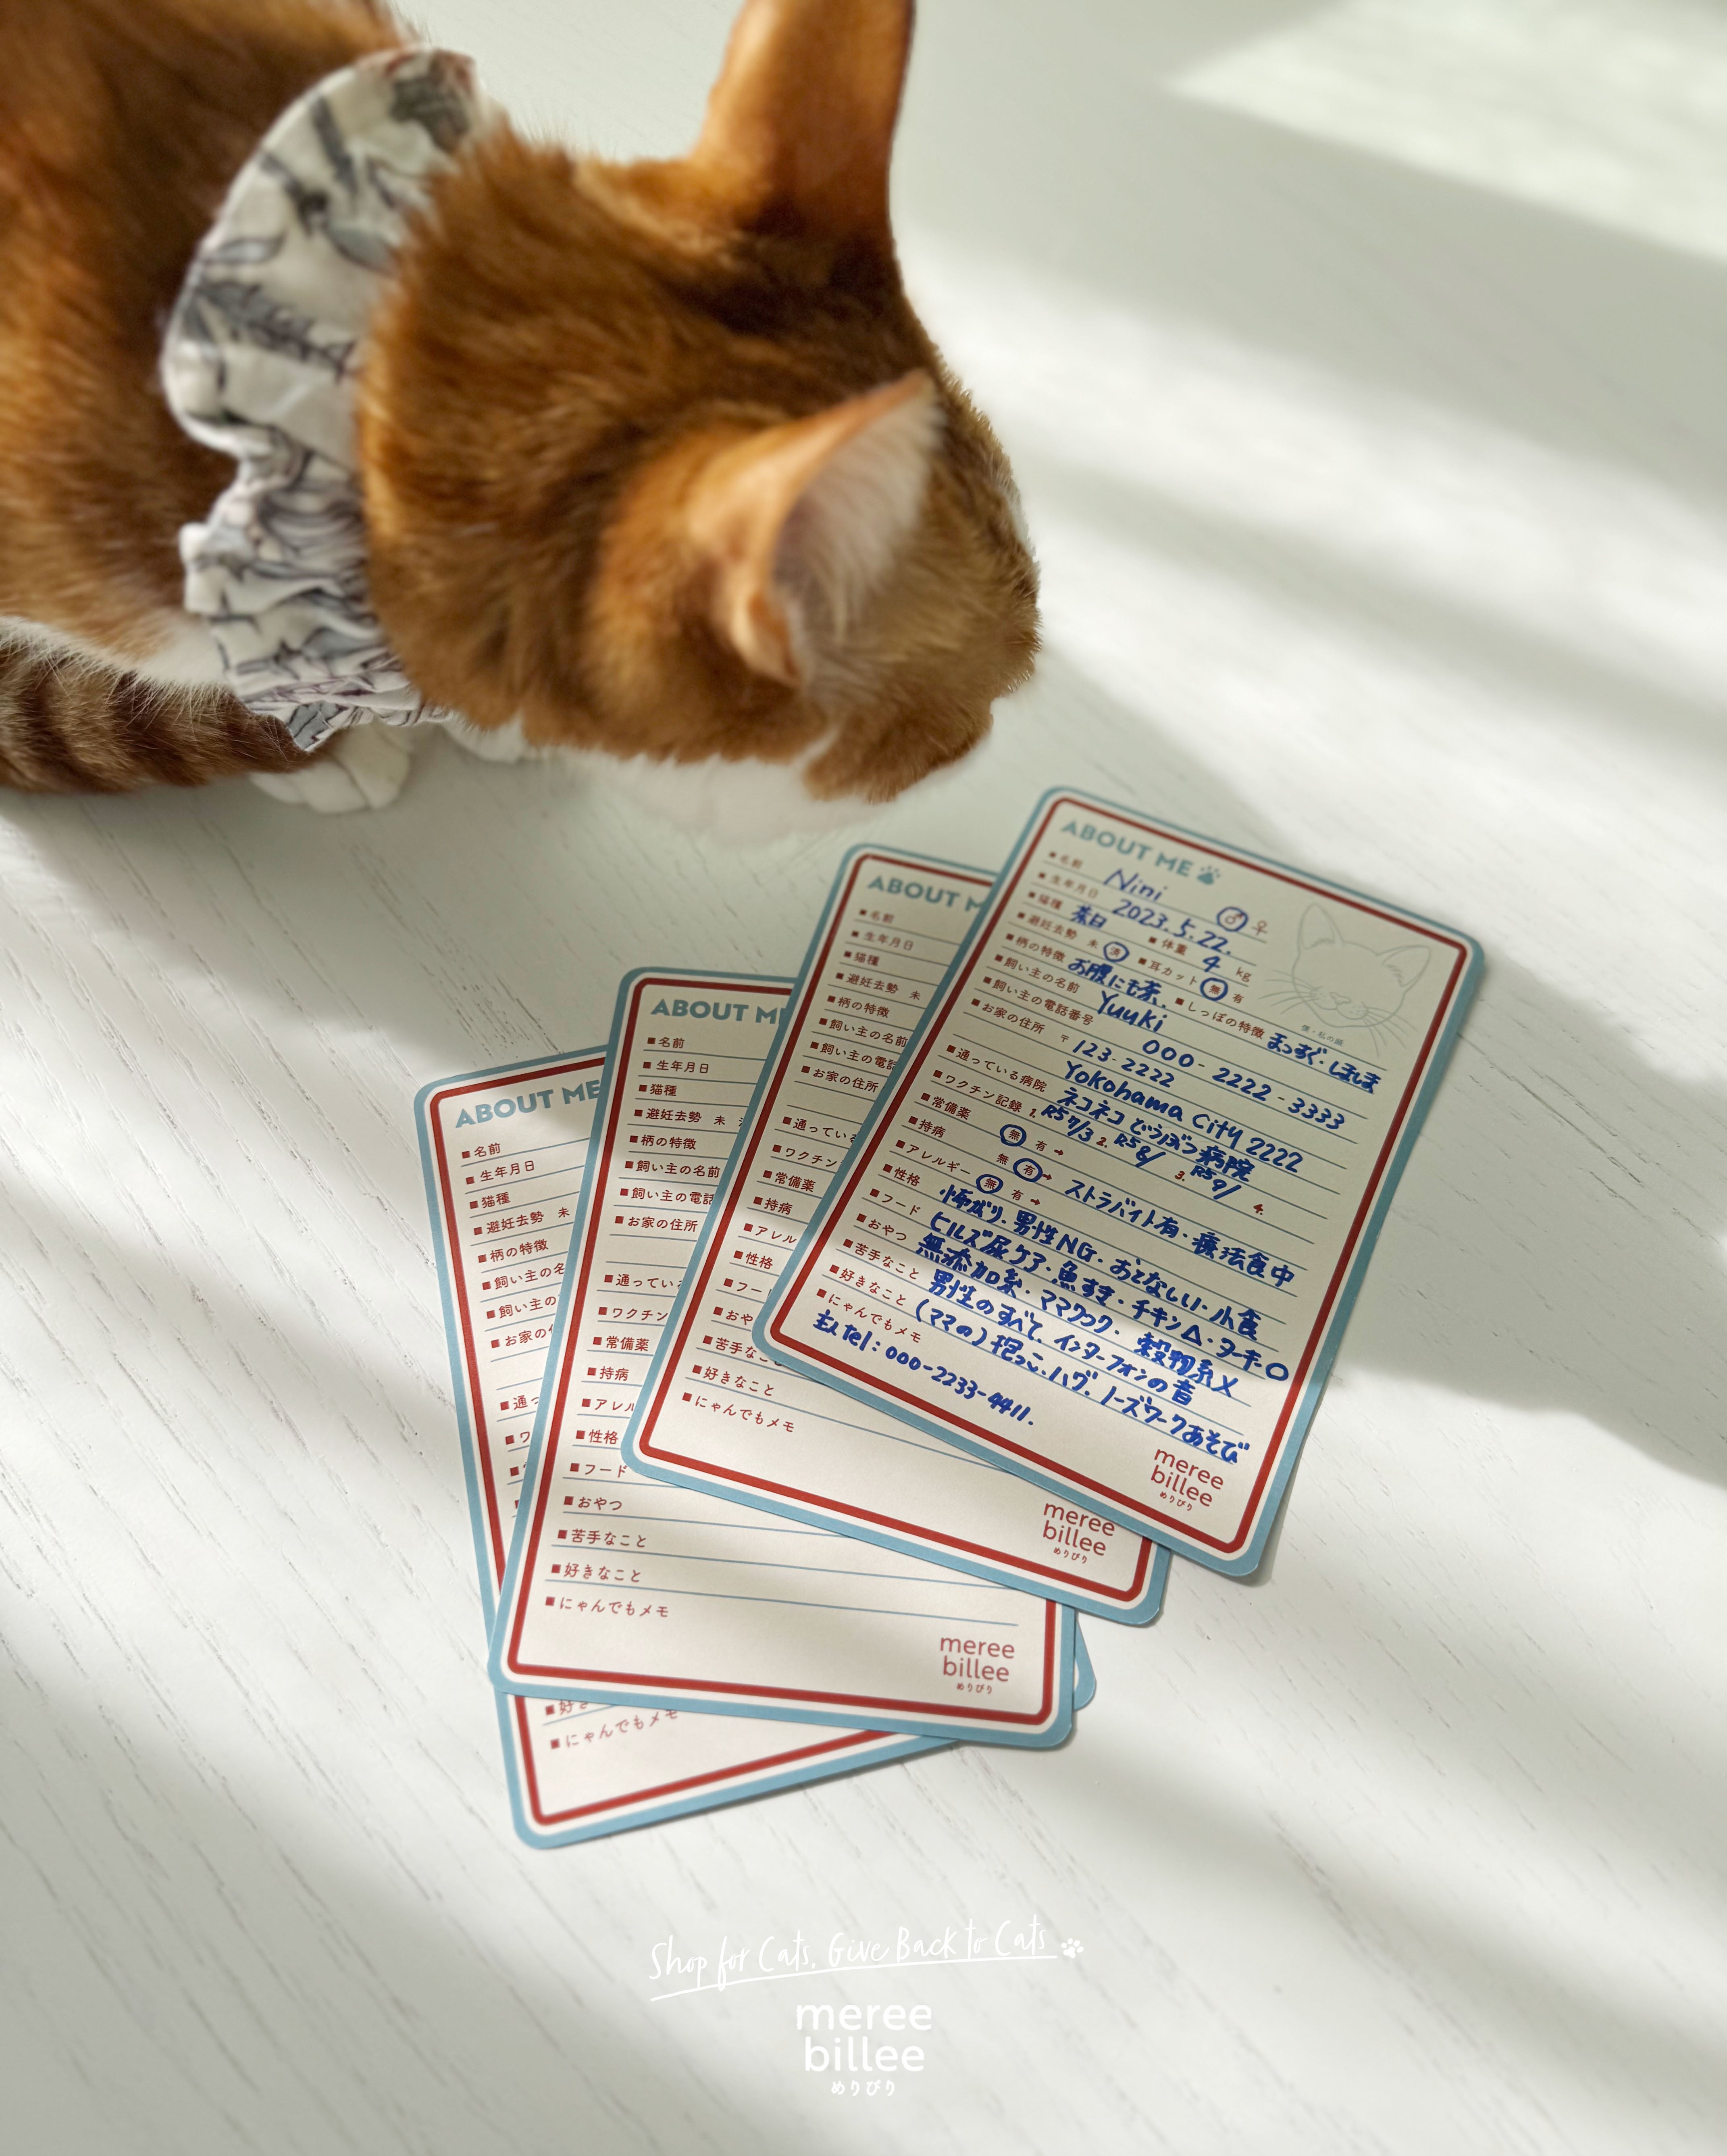 ABOUT ME
■名前 Nini ♂ ♀
■生年月日 2023.5.22.
■猫種 茶白 ■体重 4 kg
■避妊去勢 未 済 ■耳カット 無 有
■柄の特徴 お腹にも茶. ■しっぽの特徴 まっすぐ・しましま
■飼い主の名前 Yuuki
■飼い主の電話番号 000-2222-3333
■お家の住所 〒123-2222
Yokohama City 2222
■通っている病院 ネコネコどうぶつ病院
■ワクチン記録 1. R5 7/3 2. R5 8/ 3. R5 9/ 4.
■常備薬 無 有→
■持病 無 有→ ストラバイト有・療法食中
■アレルギー 無 有→
■性格 怖がり、男性NG・おとなしい・小食
■フード ヒルズ尿ケア・魚すき・チキン△・ターキー○
■おやつ 無添加系・ママクック・穀物系×
■苦手なこと 男性のすべて、インターフォンの音
■好きなこと (ママの)抱っこ、ハグ、ノーズワークあそび
■にゃんでもメモ
主人tel:000-2233-4411.
僕・私の顔
meree
billee
めりびり
ABOUT M
■名前
■生年月日
■猫種
■避妊去勢 未
■柄の特徴
■飼い主の名前
■飼い主の電話
■お家の住所
■通っている
■ワクチン
■常備薬
■持病
■アレル
■性格
■フー
■おや
■苦手なこ
■好きなこと
■にゃんでもメモ
meree
billee
めりびり
ABOUT ME
■名前
■生年月日
■猫種
■避妊去勢 未
■柄の特徴
■飼い主の名前
■飼い主の電話
■お家の住所
■通ってい
■ワクチン
■常備薬
■持病
■アレル
■性格
■フード
■おやつ
■苦手なこと
■好きなこと
■にゃんでもメモ
meree
billee
めりびり
ABOUT ME
■名前
■生年月日
■猫種
■避妊去勢 未
■柄の特徴
■飼い主の名
■飼い主の
■お家の
■通っ
■ワ
■好き
■にゃんでもメモ
Shop for Cats, Give Back to Cats
meree
billee
めりびり